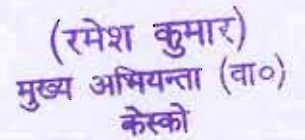 (रमेश कुमार)
मुख्य अभियन्ता (वा०)
केस्को